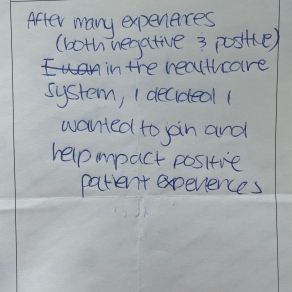 After many experiences
(both negative & positive)
in the healthcare
system, I decided I
wanted to join and
help impact positive
patient experiences